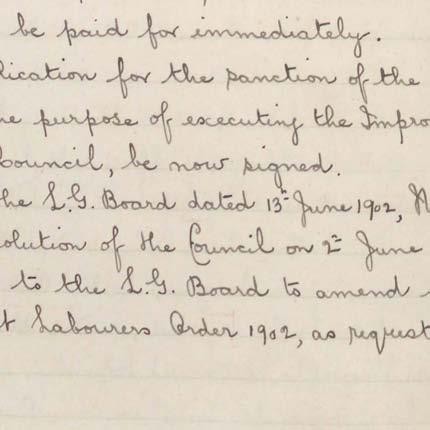 be paid for immediately.
lication for the sanction of the
he purpose of executing the Impro
Council, be now signed.
he L.G. Board dated 13th June 1902, N
solution of the Council on 2nd June
to the L.G. Board to amend
t Labourers Order 1902, as request